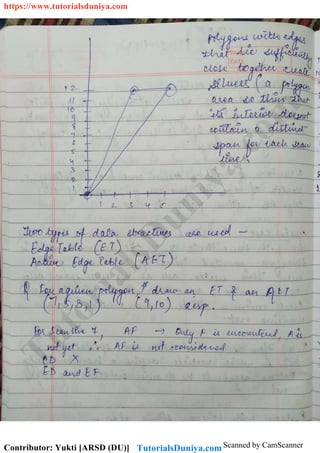 https://www.tutorialsduniya.com
polygons with edges
that are sufficiently
close together create
slivers (a polygon
area so thin that
its interior doesnot
contain a distinct
span for each scan
line.)
12
11
10
9
8
7
6
5
4
3
2
1
1 2 3 4 5
Two types of data structures are used —
Edge Table (ET)
Active Edge Table (AET)
Q For a given polygon, draw an ET & an AET
(7, 5, 3, 1) (9, 10) resp.
For Scanline 7, AF → Only F is encountered, A is
not yet ∴ AF is not considered.
CD X
ED and EF
Contributor: Yukti [ARSD (DU)] TutorialsDuniya.com Scanned by CamScanner